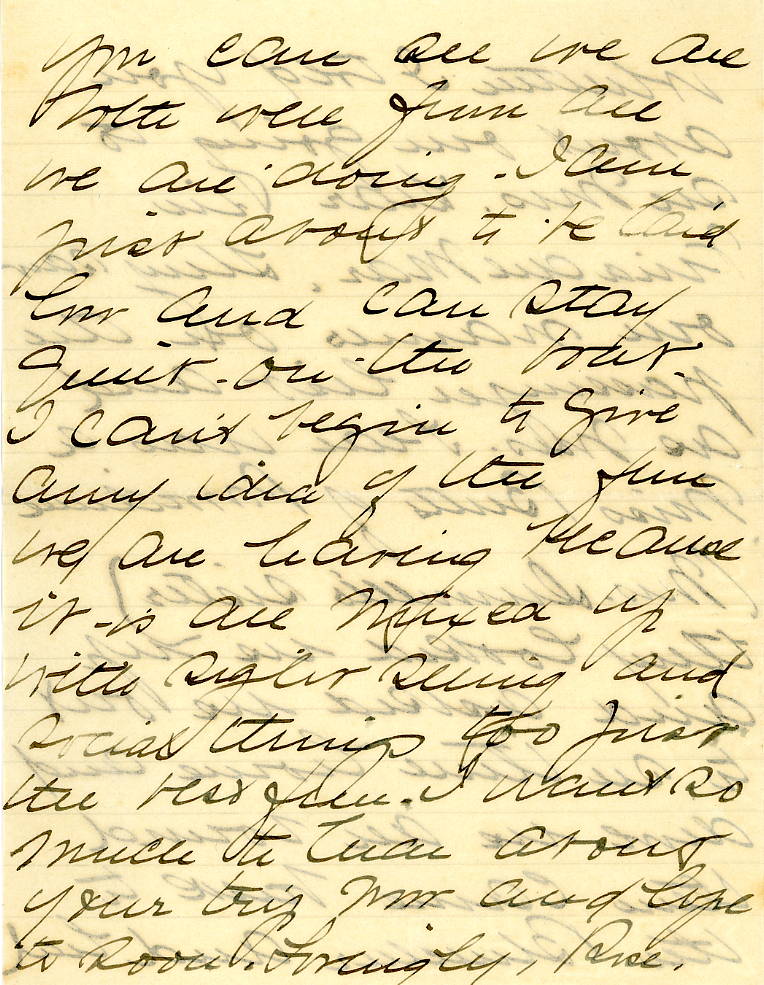 You can see we are
both well from all
we are doing. I am
just about to be laid
low and can stay
quiet on the boat.
I can't begin to give
any idea of the fun
we are having because
it is all mixed up
with sight seeing and
social things too just
the best fun. I want so
much to hear about
your trip now and hope
to soon. Lovingly, Rose.